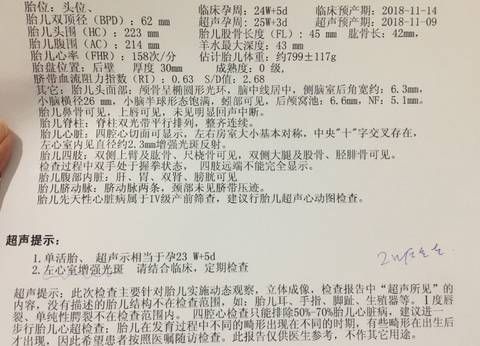 胎位：头位、 临床孕周：24W+5d 临床预产期：2018-11-14
胎儿双顶径（BPD）：62 mm 超声孕周：25W+3d 超声预产期：2018-11-09
胎儿头围（HC）：223 mm 胎儿股骨长度（FL）：45 mm 肱骨长：42mm，
胎儿腹围（AC）：214 mm 羊水最大深度：43 mm
胎儿心率（FHR）：158次/分 估计胎儿体重：约799±117g
胎盘位置：后壁 厚度：30mm 成熟度：0 级，
脐带血流阻力指数（RI）：0.63 S/D值：2.68
其它：胎儿头面部：颅骨呈椭圆形光环，脑中线居中，侧脑室后角宽约：6.3mm，
小脑横径26 mm，小脑半球形态饱满，蚓部可见，后颅窝池：6.6mm，NF：5.1mm。
胎儿鼻骨可见，上唇可见，未见明显回声中断。
胎儿脊柱：脊柱双光带平行排列，整齐连续。
胎儿心脏：四腔心切面可显示，左右房室大小基本对称，中央"十"字交叉存在，
左心室内见直径约2.3mm增强光斑反射。
胎儿四肢：双侧上臂及肱骨、尺桡骨可见，双侧大腿及股骨、胫腓骨可见。
检查过程中双手处于握拳状态， 四肢远端不能完全显示。
胎儿腹部内脏：肝、胃、双肾、膀胱可见
胎儿脐动脉：脐动脉两条，颈部未见脐带压迹。
胎儿先天性心脏病属于IV级产前筛查，建议行胎儿超声心动图检查。
超声提示：
1.单活胎、 超声示相当于孕23 W+5d
2.左心室增强光斑 请结合临床，定期检查
超声提示：此次检查主要针对胎儿实施动态观察，立体成像，检查报告中“超声所见”的
内容，没有描述的胎儿结构不在检查范围，如：胎儿耳、手指、脚趾、生殖器等。I度唇
裂、单纯性腭裂不在检查范围内。 四腔心检查只能排除50%-70%胎儿心脏病，建议进一
步行胎儿心超检查；胎儿在发育过程中不同的畸形出现在不同的时期，有些畸形在出生后
才出现，因此希望患者按照医嘱随访检查。此报告仅供医生参考，不作其它用途。